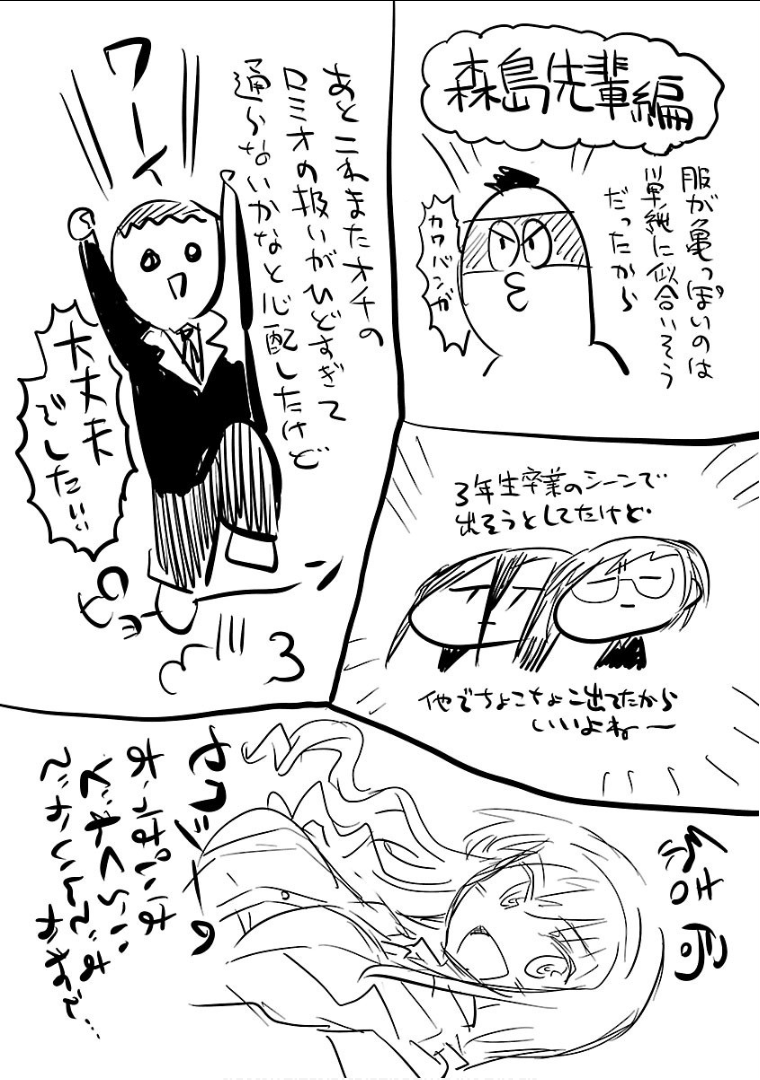 森島先輩編
服が亀っぽいのは
単純に似合いそう
だったから
カワバンガ
あとこれまたオチの
ロミオの扱いがひどすぎて
通らないかなと心配したけど
ワーイ
大丈夫
でした!!
3年生卒業のシーンで
出そうとしてたけど
他でちょこちょこ出てたから
いいよねー
結局
セクシーの
おっぱいは
どれくらい
でかいんで